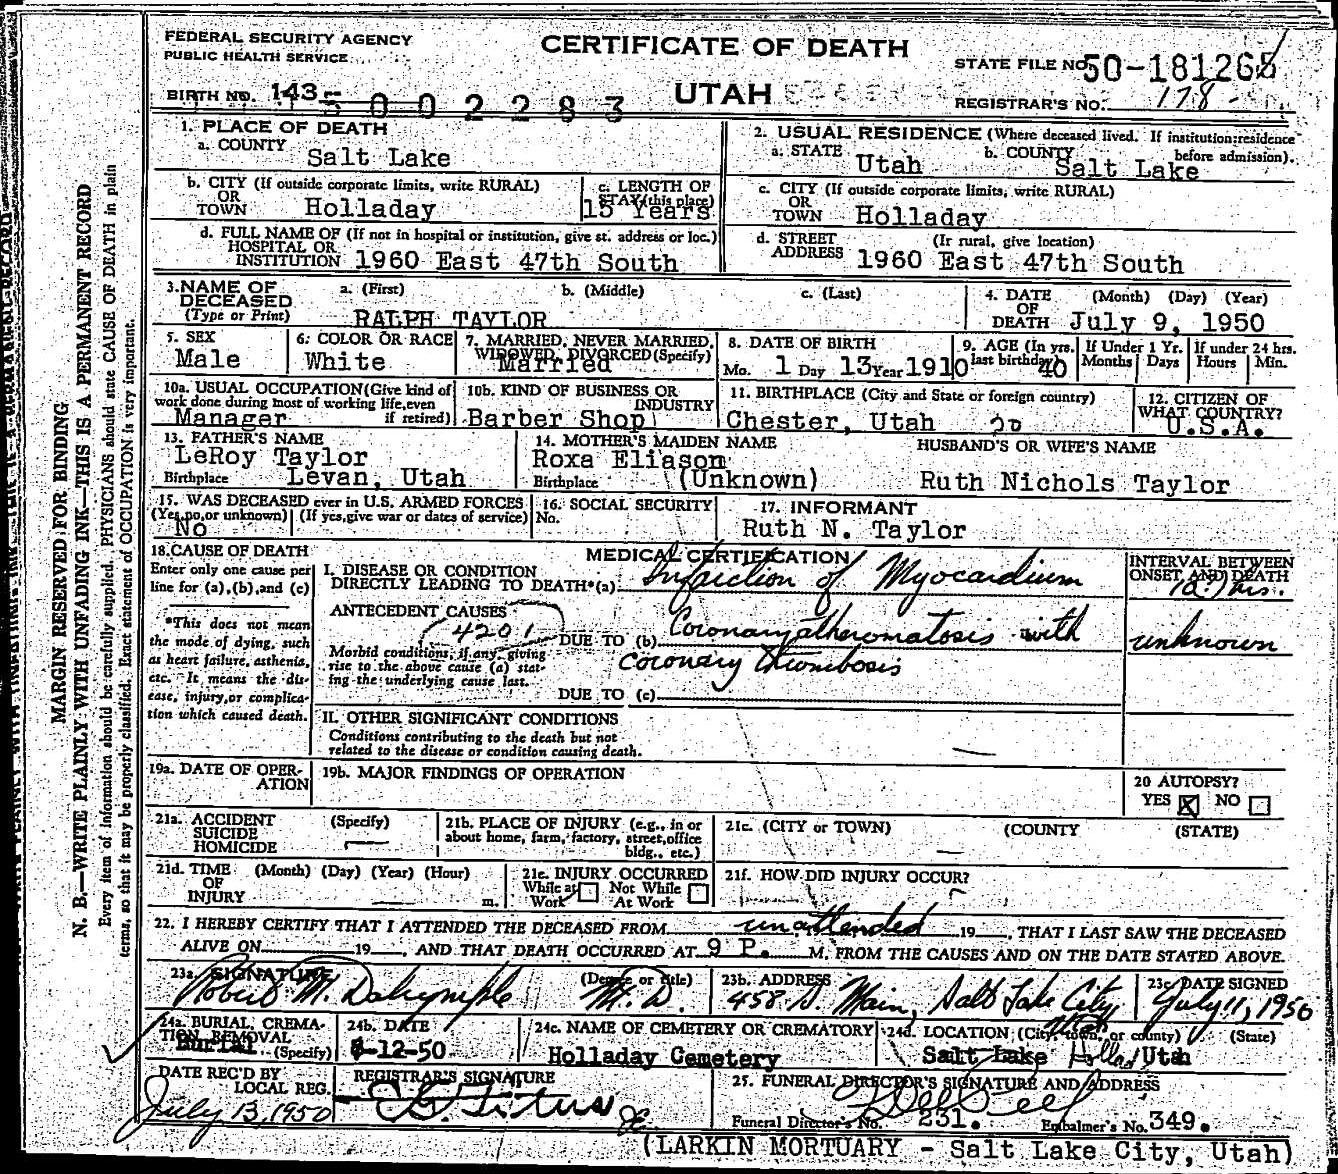 FEDERAL SECURITY AGENCY
PUBLIC HEALTH SERVICE
CERTIFICATE OF DEATH
UTAH
STATE FILE NO. 50-181265
BIRTH NO. 143
5002283
REGISTRAR'S NO. 178
1. PLACE OF DEATH
a. COUNTY
Salt Lake
2. USUAL RESIDENCE (Where deceased lived. If institution: residence before admission).
a. STATE Utah b. COUNTY Salt Lake
b. CITY (If outside corporate limits, write RURAL)
OR
TOWN Holladay
c. LENGTH OF
STAY (this place)
15 Years
c. CITY (If outside corporate limits, write RURAL)
OR
TOWN Holladay
d. FULL NAME OF (If not in hospital or institution, give st. address or loc.)
HOSPITAL OR
INSTITUTION 1960 East 47th South
d. STREET (If rural, give location)
ADDRESS 1960 East 47th South
3. NAME OF
DECEASED
(Type or Print)
a. (First) b. (Middle) c. (Last)
RALPH TAYLOR
4. DATE (Month) (Day) (Year)
OF
DEATH July 9, 1950
5. SEX
Male
6. COLOR OR RACE
White
7. MARRIED, NEVER MARRIED,
WIDOWED, DIVORCED (Specify)
Married
8. DATE OF BIRTH
Mo. 1 Day 13 Year 1910
9. AGE (In yrs.
last birthday) 40
If Under 1 Yr.
Months Days
If under 24 hrs.
Hours Min.
10a. USUAL OCCUPATION (Give kind of
work done during most of working life, even
if retired)
Manager
10b. KIND OF BUSINESS OR
INDUSTRY
Barber Shop
11. BIRTHPLACE (City and State or foreign country)
Chester, Utah
12. CITIZEN OF
WHAT COUNTRY?
U.S.A.
13. FATHER'S NAME
LeRoy Taylor
Birthplace Levan, Utah
14. MOTHER'S MAIDEN NAME
Roxa Eliason
Birthplace (Unknown)
HUSBAND'S OR WIFE'S NAME
Ruth Nichols Taylor
15. WAS DECEASED ever in U.S. ARMED FORCES
(Yes, no, or unknown) (If yes, give war or dates of service)
No
16. SOCIAL SECURITY
No.
17. INFORMANT
Ruth N. Taylor
18. CAUSE OF DEATH
Enter only one cause per
line for (a), (b), and (c)
*This does not mean
the mode of dying, such
as heart failure, asthenia,
etc. It means the dis-
ease, injury, or complica-
tion which caused death.
MEDICAL CERTIFICATION
I. DISEASE OR CONDITION
DIRECTLY LEADING TO DEATH*(a) Infarction of Myocardium
ANTECEDENT CAUSES
4201
DUE TO (b) Coronary atheromatosis with
coronary thrombosis
Morbid conditions, if any, giving
rise to the above cause (a) stat-
ing the underlying cause last.
DUE TO (c)
INTERVAL BETWEEN
ONSET AND DEATH
unknown
II. OTHER SIGNIFICANT CONDITIONS
Conditions contributing to the death but not
related to the disease or condition causing death.
19a. DATE OF OPER-
ATION
19b. MAJOR FINDINGS OF OPERATION
20 AUTOPSY?
YES X NO
21a. ACCIDENT (Specify)
SUICIDE
HOMICIDE
21b. PLACE OF INJURY (e.g., in or
about home, farm, factory, street, office
bldg., etc.)
21c. (CITY or TOWN) (COUNTY (STATE)
21d. TIME (Month) (Day) (Year) (Hour)
OF
INJURY m.
21e. INJURY OCCURRED
While at Work Not While At Work
21f. HOW DID INJURY OCCUR?
22. I HEREBY CERTIFY THAT I ATTENDED THE DECEASED FROM unattended 19 , THAT I LAST SAW THE DECEASED
ALIVE ON 19 , AND THAT DEATH OCCURRED AT 9 P. M, FROM THE CAUSES AND ON THE DATE STATED ABOVE.
23a. SIGNATURE (Degree or title)
Robert M. Dalrymple M.D.
23b. ADDRESS
458 S. Main, Salt Lake City, Utah
23c. DATE SIGNED
July 11, 1950
24a. BURIAL, CREMA-
TION, REMOVAL
(Specify)
Burial
24b. DATE
-12-50
24c. NAME OF CEMETERY OR CREMATORY
Holladay Cemetery
24d. LOCATION (City, town, or county) (State)
Salt Lake Utah
DATE REC'D BY
LOCAL REG.
July 13, 1950
REGISTRAR'S SIGNATURE
25. FUNERAL DIRECTOR'S SIGNATURE AND ADDRESS
Funeral Director's No. 231. Embalmer's No. 349.
(LARKIN MORTUARY - Salt Lake City, Utah)
MARGIN RESERVED FOR BINDING
N. B.—WRITE PLAINLY WITH UNFADING INK—THIS IS A PERMANENT RECORD
Every item of information should be carefully supplied. PHYSICIANS should state CAUSE OF DEATH in plain
terms, so that it may be properly classified. Exact statement of OCCUPATION is very important.